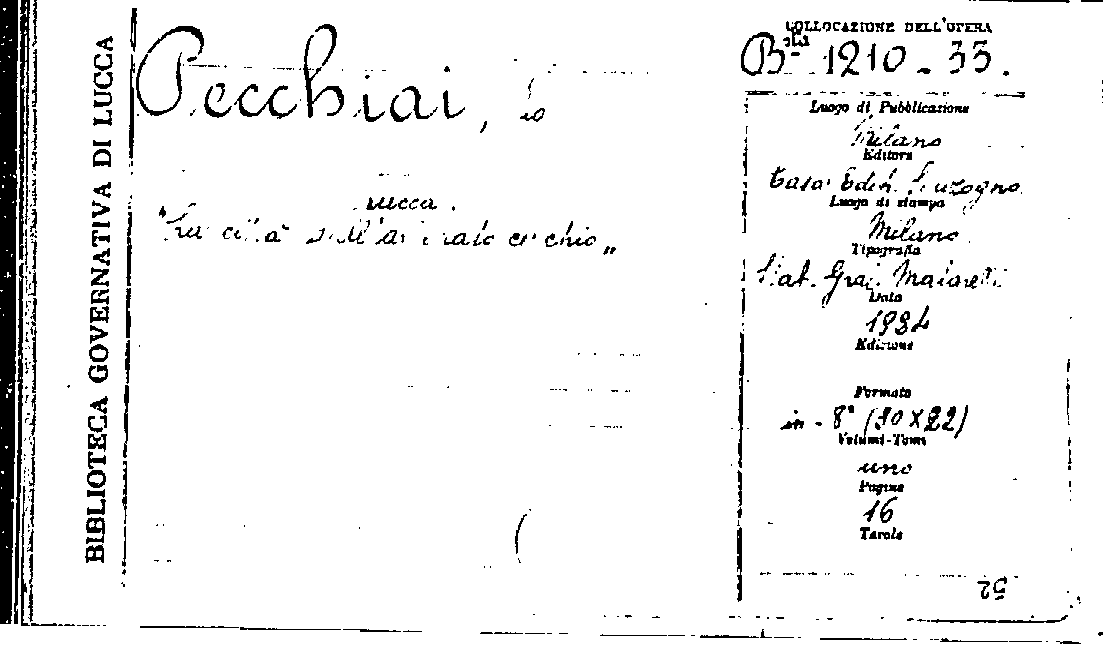 BIBLIOTECA GOVERNATIVA DI LUCCA
Pecchiai,
Lucca.
"La città dall'arborato cerchio„
COLLOCAZIONE DELL'OPERA
Bta 1210-33.
Luogo di Pubblicazione
Milano
Editore
Casa Edit. Sonzogno
Luogo di stampa
Milano
Tipografia
Stab. Graf.
Data
Edizione
Formato
in-8° (30x22)
Volumi-Tomi
uno
Pagine
16
Tavole
52